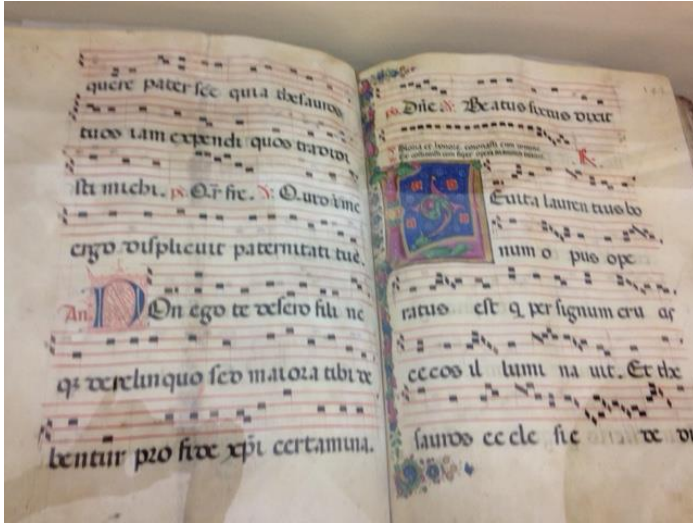 quere pater sce quia thesauros
tuos iam expendi quos tradidi
sti michi. ps Or sie. V. Quid in me
ergo displicuit paternitati tue.
An. Non ego te desero fili ne
q3 derelinquo sed maiora tibi de
bentur pro fide xpi certamina.
ps. Dne. V. Beatus sixtus dixit
Gloria et honore coronasti eum domine
R
Leuita laurentius bo
num o pus ope
ratus est q per signum cru cis
cecos il lumi na uit. Et the
sauros ec cle sie de di